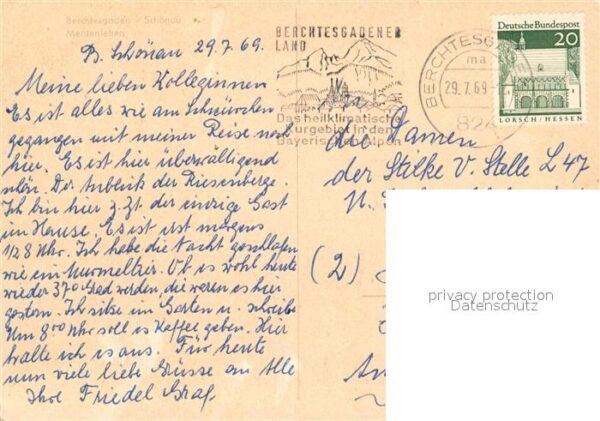 Berchtesgaden / Schönau
B. Schönau 29.7.69.
Meine lieben Kolleginnen
Es ist alles wie am Schnürchen
gegangen mit meiner Reise nach
hier. Es ist hier überwältigend
schön. Der Anblick der Riesenberge.
Ich bin hier z. Zt. der einzige Gast
im Hause. Es ist erst morgens
1/2 8 Uhr. Ich habe die Nacht geschlafen
wie ein Murmeltier. Ob es wohl heute
wieder 37 Grad werden, die waren es hier
gestern. Ich sitze im Garten u. schreibe
Um 8 00 Uhr soll es Kaffee geben. Hier
halte ich es aus. Für heute
nun viele liebe Grüsse an Alle
Ihre Friedel Graf
BERCHTESGADENER
LAND
Das heilklimatische
Kurgebiet in den
Bayerischen Alpen
BERCHTESGADEN
29.7.69
824
Deutsche Bundespost
20
LORSCH / HESSEN
An
die Damen
der Stelke V. Stelle L 47
(2)
privacy protection
Datenschutz